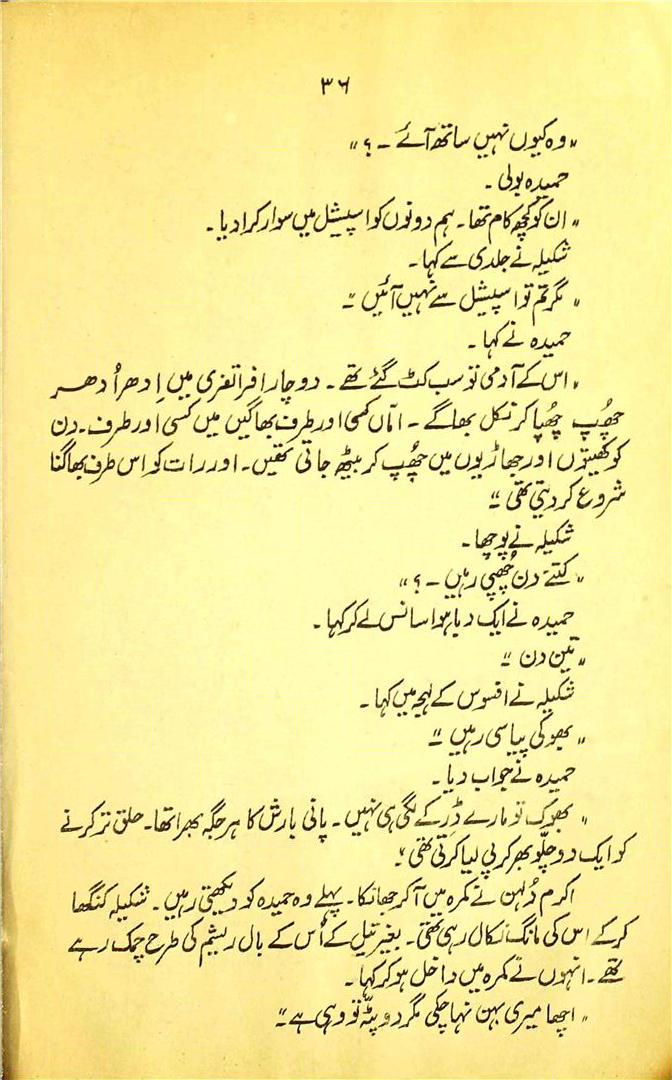 ۳۶
"وہ کیوں نہیں ساتھ آئے ۔ ؟"
حمیدہ بولی ۔
"ان کو کچھ کام تھا ۔ ہم دونوں کو اسپیشل میں سوار کرا دیا ۔
شکیلہ نے جلدی سے کہا ۔
"مگر تم تو اسپیشل سے نہیں آئیں ۔"
حمیدہ نے کہا ۔
"اس کے آدمی تو سب کٹ گئے تھے ۔ دو چار افراتفری میں اِدھر اُدھر
چھُپ چھُپا کر نکل بھاگے ۔ امّاں کسی اور طرف بھاگیں میں کسی اور طرف ۔ دن
کو کھیتوں اور جھاڑیوں میں چھُپ کر بیٹھ جاتی تھیں ۔ اور رات کو اس طرف بھاگنا
شروع کر دیتی تھی ۔"
شکیلہ نے پوچھا ۔
"کتنے دن چھُپی رہیں ۔ ؟"
حمیدہ نے ایک دبا ہوا سانس لے کر کہا ۔
"تین دن ۔"
شکیلہ نے افسوس کے لہجہ میں کہا ۔
"بھوکی پیاسی رہیں ۔"
حمیدہ نے جواب دیا ۔
"بھوک تو مارے ڈر کے لگی ہی نہیں ۔ پانی بارش کا ہر جگہ بھرا تھا ۔ حلق تر کرنے
کو ایک دو چلّو بھر کر پی لیا کرتی تھی ۔"
اکرم دُلہن نے کمرہ میں آ کر جھانکا ۔ پہلے وہ حمیدہ کو دیکھتی رہیں ۔ شکیلہ کنگھا
کر کے اس کی مانگ نکال رہی تھی ۔ بغیر تیل کے اُس کے بال ریشم کی طرح چمک رہے
تھے ۔ انہوں نے کمرہ میں داخل ہو کر کہا ۔
"اچھا میری بہن نہا چکی مگر دوپٹہ تو وہی ہے ۔"